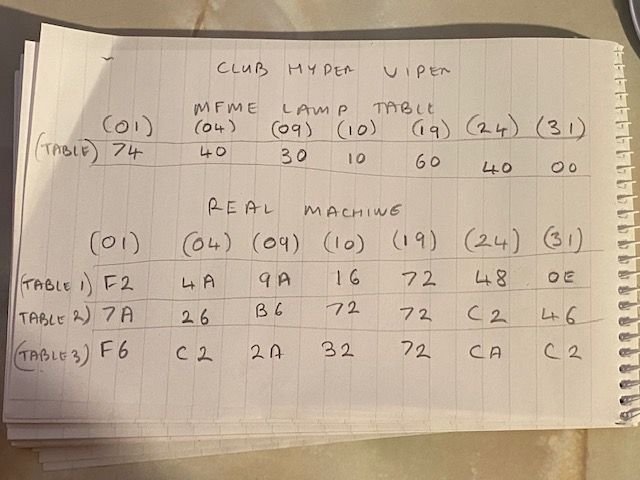 CLUB HYPER VIPER
MFME LAMP TABLE
(01) (04) (09) (10) (19) (24) (31)
(TABLE) 74 40 30 10 60 40 00
REAL MACHINE
(01) (04) (09) (10) (19) (24) (31)
(TABLE 1) F2 4A 9A 16 72 48 0E
TABLE 2) 7A 26 B6 72 72 C2 46
(TABLE 3) F6 C2 2A 32 72 CA C2